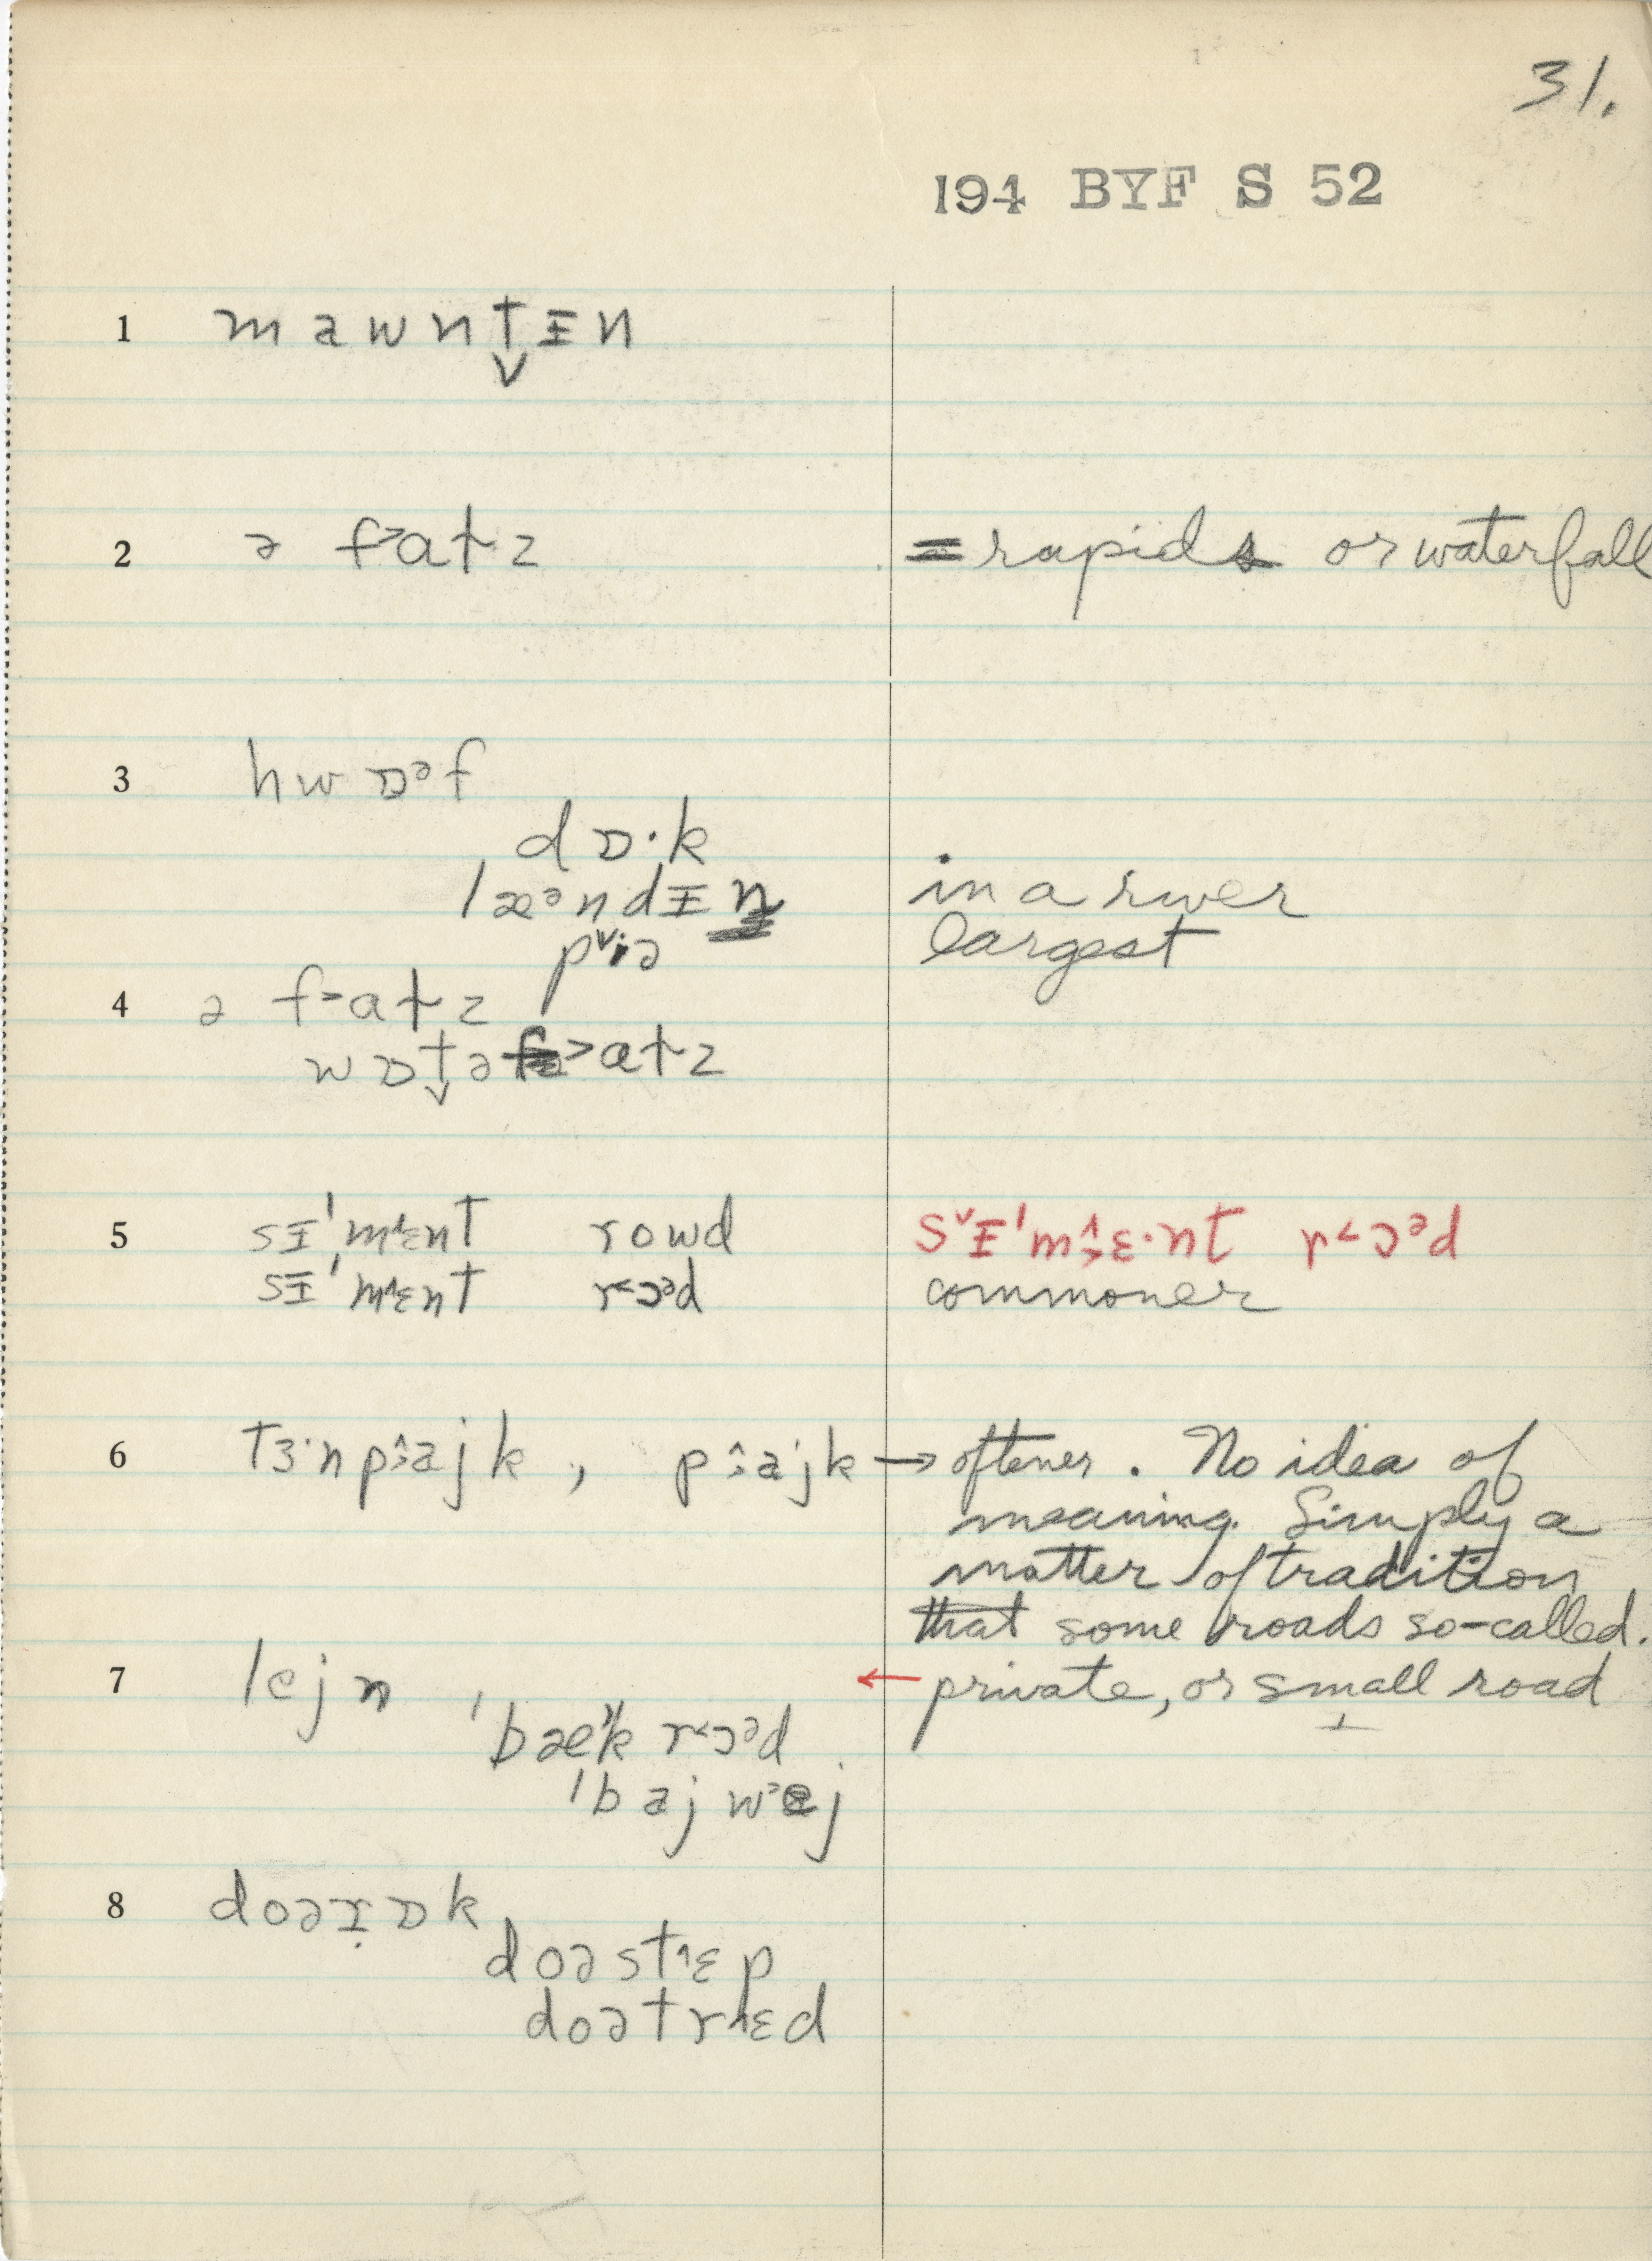 31.
194 BYF S 52
1 mawnt̬ᵻn
2 ə f˃aɫz = rapids or waterfall
3 hwɒᵊf
dɒ·k
ˈlæᵊndᵻn in a river
p˅iə largest
4 ə f˃aɫz
wɒt̬ə f˃aɫz
5 sᵻˈm˄ɛnt rowd sᵛᵻˈm˄ɛ·nt r˂ɔᵊd
sᵻˈm˄ɛnt r˂ɔᵊd commoner
6 tɜ·np˄ajk, p˄ajk → oftener. No idea of
meaning. Simply a
matter of tradition
that some roads so-called.
7 lejn, ← private, or small road
ˈbæ˅k r˂ɔᵊd
ˈbajw˃ej
8 doəɪ̣ɒk
doəst˄ɛp
doətr˄ɛd